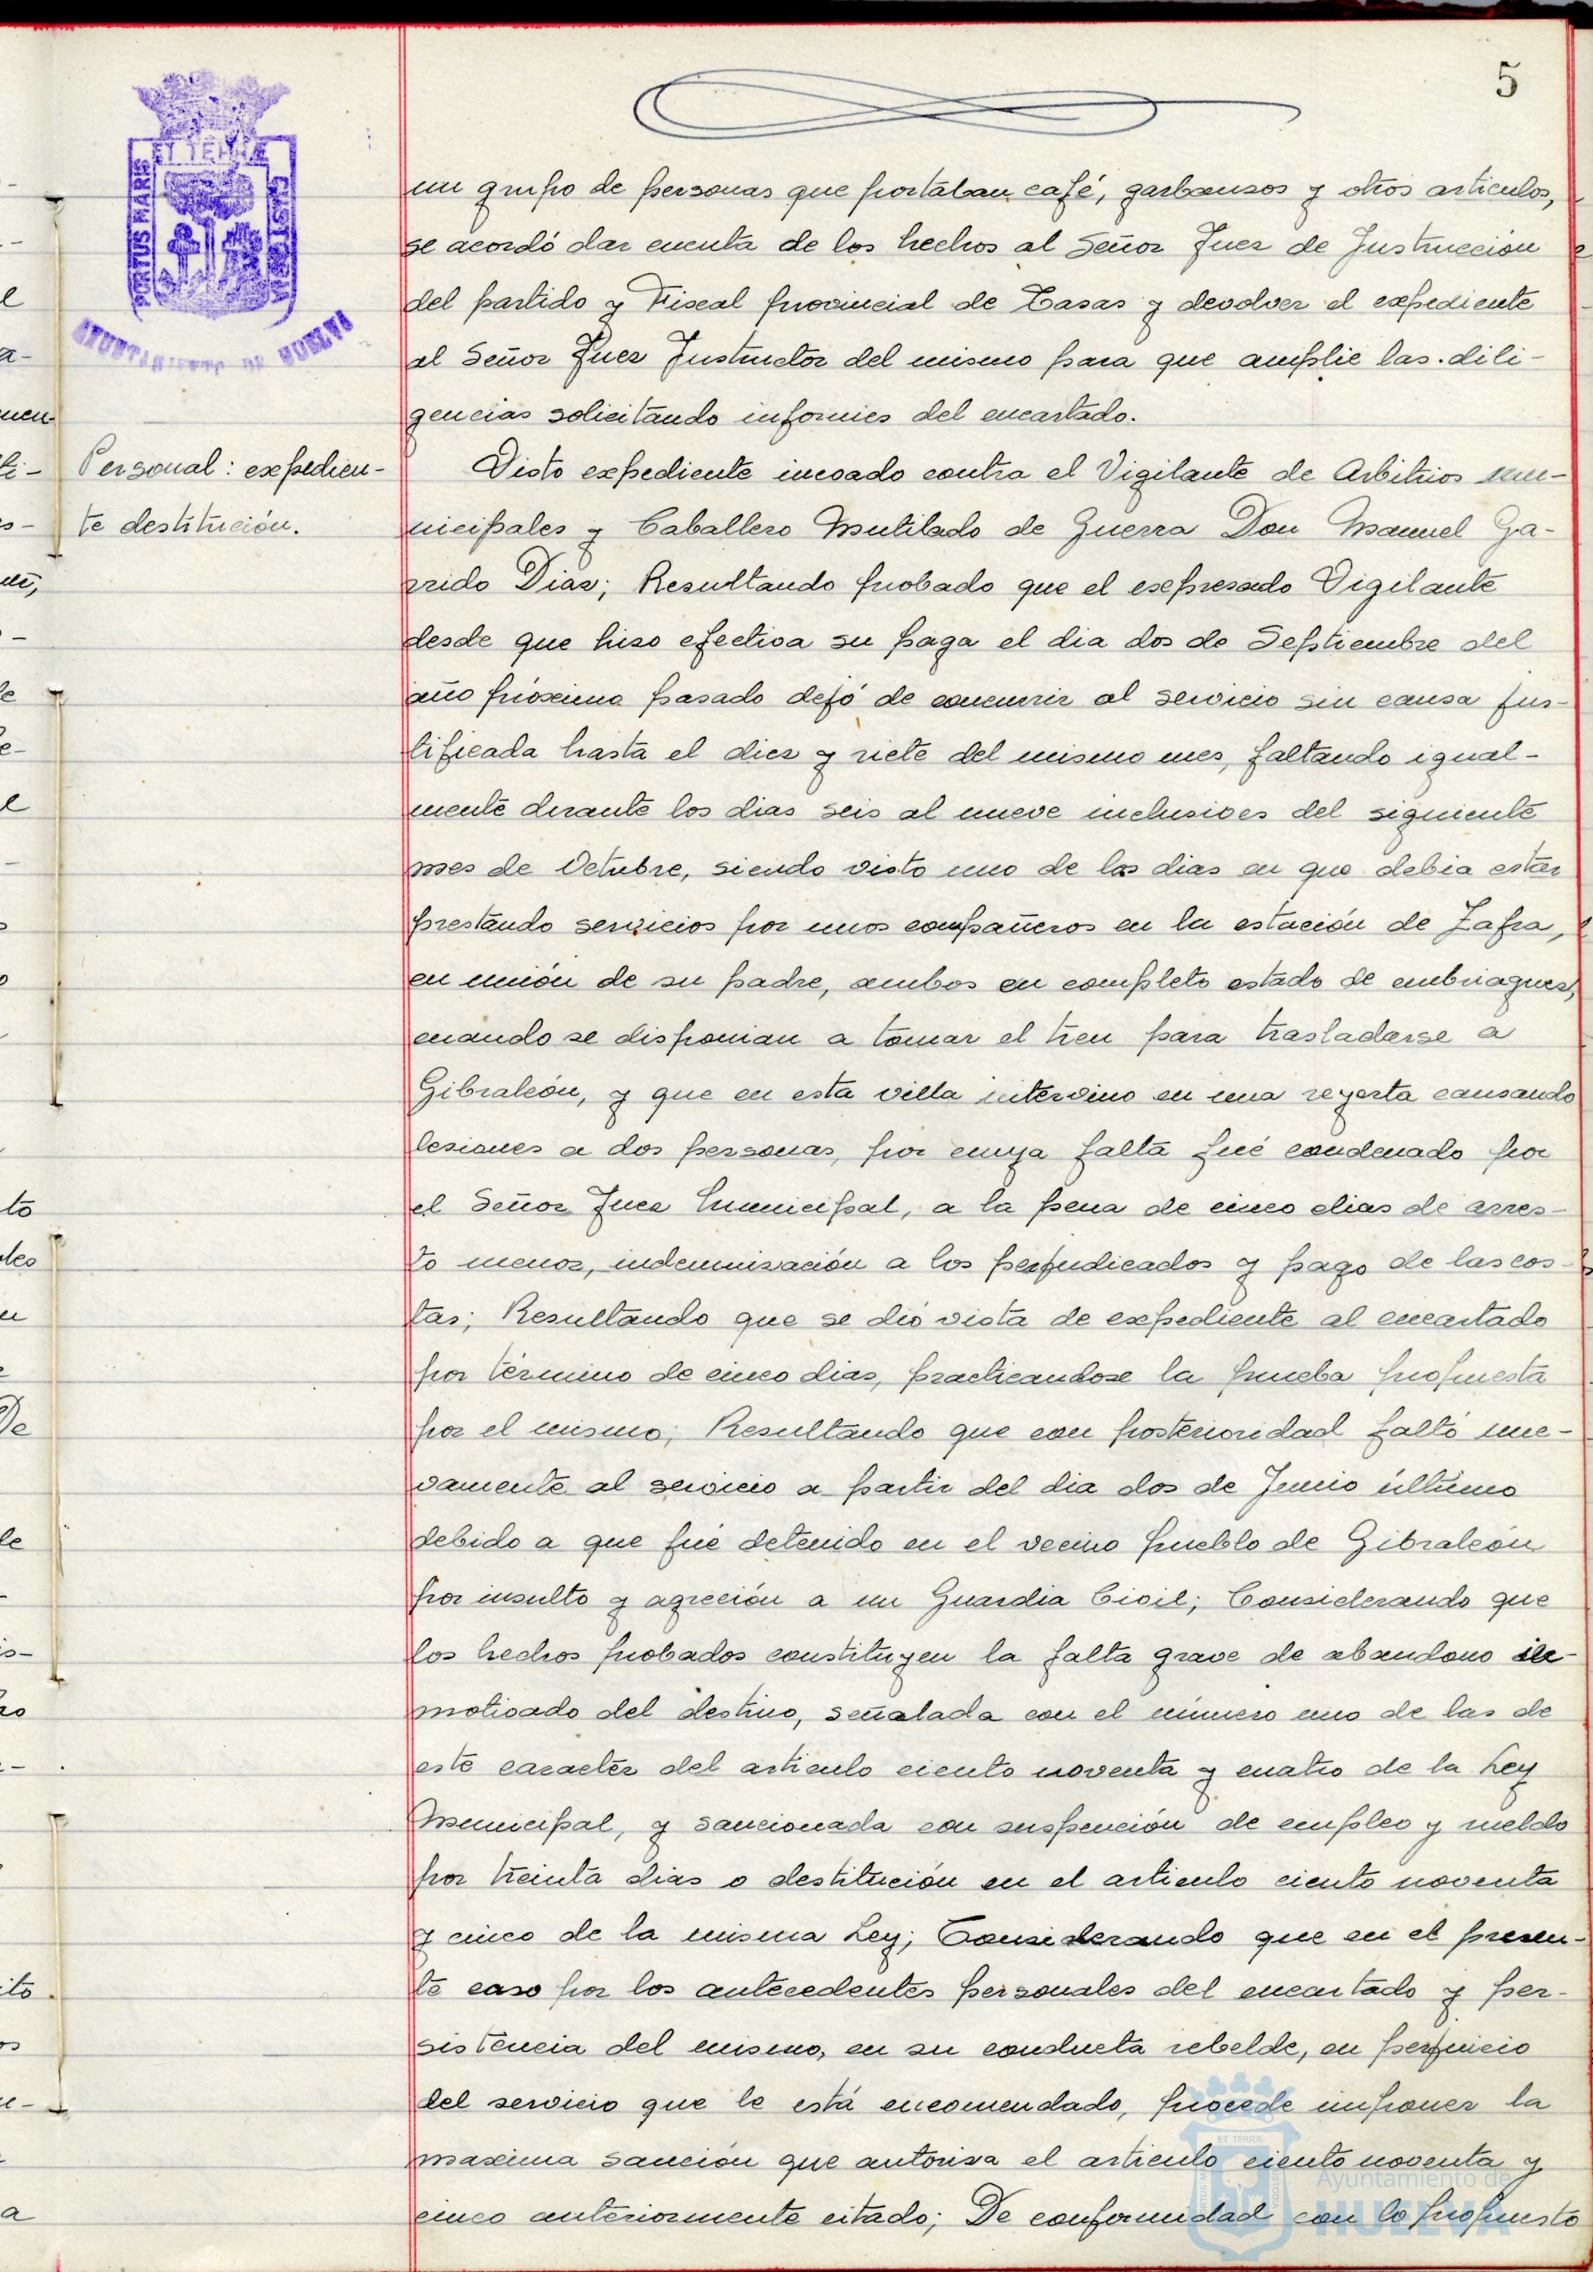 5
ET TERRÆ
PORTUS MARIS
CUSTODIA
AYUNTAMIENTO DE HUELVA
un grupo de personas que portaban café, garbansos y otros articulos,
se acordó dar cuenta de los hechos al Señor Juez de Instrucción
del partido y Fiscal provincial de Tasas y devolver el expediente
al Señor Juez Instructor del mismo para que amplie las dili-
gencias solicitando informes del encartado.
Personal: expedien-
te destitución.
Visto expediente incoado contra el Vigilante de Arbitrios mu-
nicipales y Caballero Mutilado de Guerra Don Manuel Ga-
rrido Dias; Resultando probado que el esepresado Vigilante
desde que hiso efectiva su paga el dia dos de Septiembre del
año próximo pasado dejó de concurrir al servicio sin causa jus-
tificada hasta el diez y siete del mismo mes, faltando igual-
mente durante los dias seis al nueve inclusives del siguiente
mes de Octubre, siendo visto uno de los dias en que debia estar
prestando servicios por unos compañeros en la estación de Zafra,
en unión de su padre, ambos en completo estado de embriagues,
cuando se disponian a tomar el tren para trasladarse a
Gibraleón, y que en esta villa intervino en una reyerta causando
lesiones a dos personas, por cuya falta fué condenado por
el Señor Juez Municipal, a la pena de cinco dias de arres-
to menor, indemnisación a los perjudicados y pago de las cos-
tas; Resultando que se dió vista de expediente al encartado
por término de cinco dias, practicandose la prueba propuesta
por el mismo; Resultando que con posterioridad faltó nue-
vamente al servicio a partir del dia dos de Junio último
debido a que fué detenido en el vecino pueblo de Gibraleón
por insulto y agreción a un Guardia Civil; Considerando que
los hechos probados constituyen la falta grave de abandono in-
motivado del destino, señalada con el número uno de las de
este caracter del articulo ciento noventa y cuatro de la Ley
Municipal, y sancionada con suspención de empleo y sueldo
por treinta dias o destitución en el articulo ciento noventa
y cinco de la misma Ley; Considerando que en el presen-
te caso por los antecedentes personales del encartado y per-
sistencia del mismo, en su conducta rebelde, en perjuicio
del servicio que le está encomendado, procede imponer la
maxima sanción que autorisa el articulo ciento noventa y
cinco anteriormente citado; De conformidad con lo propuesto
Ayuntamiento de
HUELVA